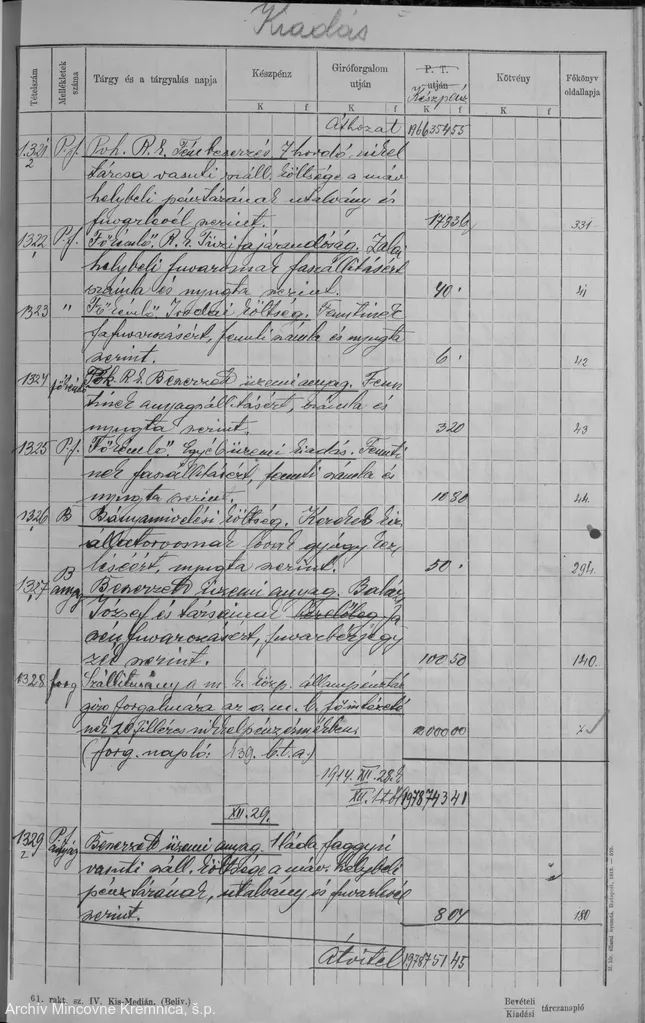 Kiadás
Tételszám
Mellékletek száma
Tárgy és a tárgyalás napja
Készpénz
Giróforgalom útján
P. T. útján
Készpénz
Kötvény
Főkönyv oldallapja
K f K f K f K f
Áthozat 1966354 55
1321 2 P.f. Pok. R. k. Fém beszerzés 7 hordó nikel
tárcsa vasuti száll. költsége a máv
helybeli pénztárának utalvány és
fuvarlevél szerint. 178 36 331
1322 1 P.f. "Főrémlő" R. k. Tüzifajárandóság.
helybeli fuvarosnak faszállitásért
számla és nyugta szerint. 40 . 41
1323 " "Főrémlő" Irodai költség. Fenntinek
fafuvarozásért, fennti számla és nyugta
szerint. 6 . 42
1324 Pok. R. k. Beszerzett üzemi anyag. Fenn
tinek anyagszállitásért, számla és
nyugta szerint. 3 20 43
1325 P.f. "Főrémlő". Egyéb üzemi kiadás. Fennti
nek faszállitásért, fennti számla és
nyugta szerint. 10 80 44
1326 1 B Bányamivelési költség.
állatorvosnak lovak gyógy ke
léséért, nyugta szerint. 50 . 294
1327 1 B anyag Beszerzett üzemi anyag.
József és társainak
fuvarozásért, fuvarbérjegy
zék szerint. 100 50 140
1328 forg Szállitmány a m. k. közp. állampénztár
giro forgalmára az o. m. b. főintézeté
nek 20 filléres nikkelpénzérmékben.
(forg. napló: 139. b. t. a.)
1914. XII. 28.
XII. 1.től 1978743 41
XII. 29.
1329 2 P.f. anyag Beszerzett üzemi anyag. 1 láda faggyu
vasuti száll. költsége a máv. helybeli
pénztárának, utalvány és fuvarlevél
szerint. 8 04 180
Átvitel 1978751 45
61. rakt. sz. IV. Kis-Median. (Beliv.)
Bevételi
Kiadási tárczanapló
M. kir. állami nyomda, Budapest, 1913.
Archív Mincovne Kremnica, š.p.